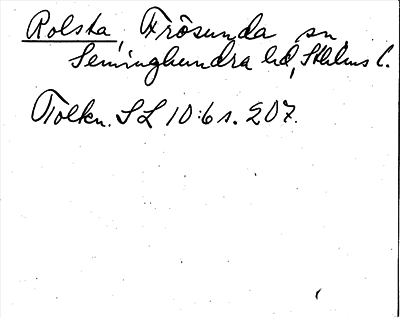 Rolsta, Frösunda sn
Seminghundra hd, Sthlms l.
Tolkn. SL 10:6 s. 207.